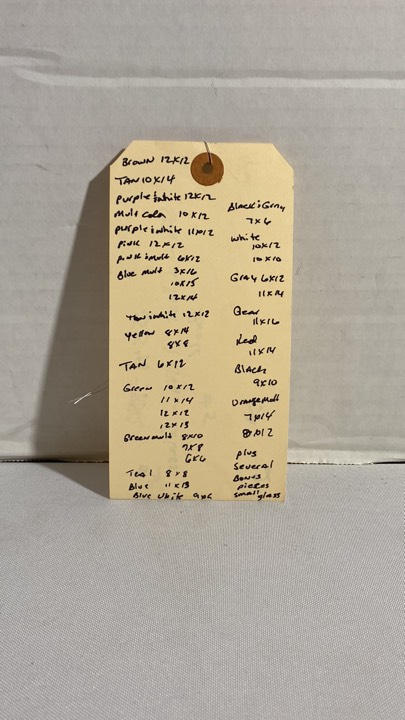 Brown 12x12
TAN 10x14
purple & white 12x12
Mult Color 10x12
purple & white 11x12
pink 12x12
pink & mult 6x12
Blue mult 3x16
10x15
12x14
white 12x12
Yellow 8x14
8x8
TAN 6x12
Green 10x12
11x14
12x12
12x13
Green mult 8x10
7x8
6x6
Teal 8x8
Blue 11x13
Blue white 9x6
Black & Gray
7x6
white
10x12
10x10
Gray 6x12
11x14
11x16
Red
11x14
Black
9x10
Orange Mult
7x14
8x12
plus
Several
Bonus
pieces
small glass